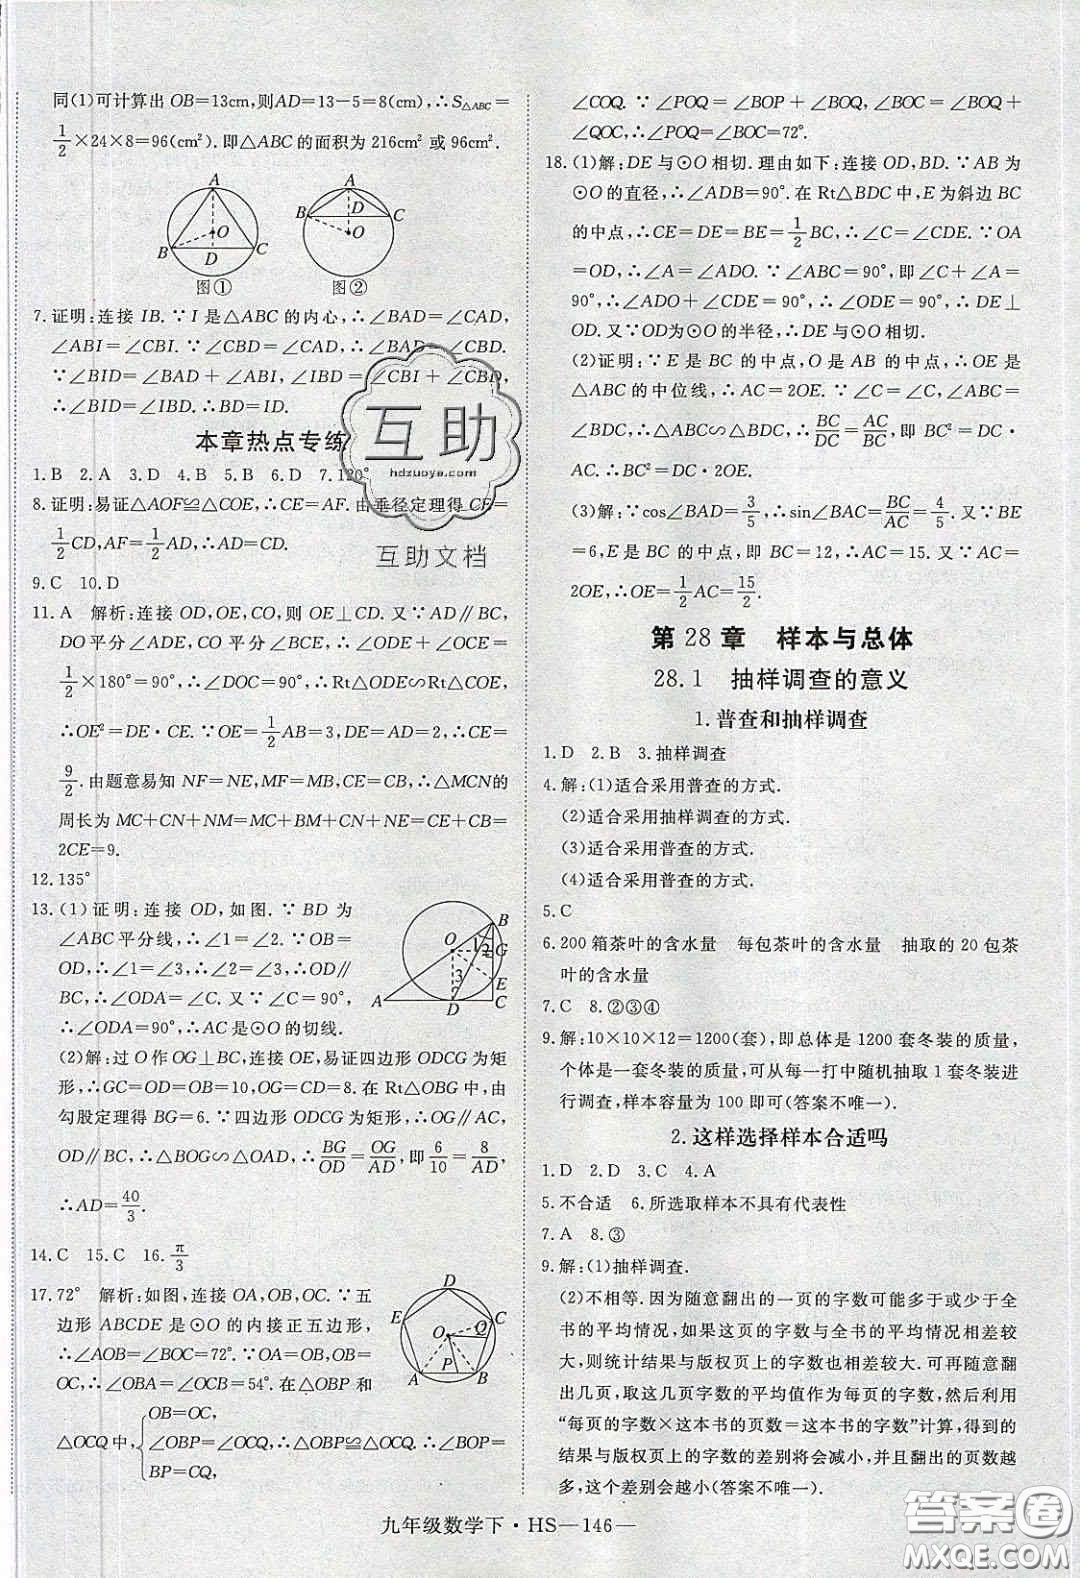 同(1)可计算出 OB=13cm,则AD=13-5=8(cm),∴S△ABC=
1/2×24×8=96(cm²).即△ABC 的面积为 216cm² 或 96cm².
A
B
O
D
C
图①
A
B
D
C
O
图②
7.证明:连接 IB.∵I 是△ABC 的内心,∴∠BAD=∠CAD,
∠ABI=∠CBI.∵∠CBD=∠CAD,∴∠BAD=∠CBD.
∵∠BID=∠BAD+∠ABI,∠IBD=∠CBI+∠CBD,
∴∠BID=∠IBD.∴BD=ID.
本章热点专练
1.B 2.A 3.D 4.B 5.B 6.D 7.120°
8.证明:易证△AOF≌△COE,∴CE=AF.由垂径定理得 CE=
1/2CD,AF=1/2AD,∴AD=CD.
9.C 10.D
11.A 解析:连接 OD,OE,CO,则 OE⊥CD.又∵AD∥BC,
DO平分∠ADE,CO 平分∠BCE,∴∠ODC+∠OCE=
1/2×180°=90°,∴∠DOC=90°,∴Rt△ODE∽Rt△COE,
∴OE²=DE·CE.∵OE=1/2AB=3,DE=AD=2,∴CE=
9/2.由题意易知 NF=NE,MF=MB,CE=CB,∴△MCN的
周长为 MC+CN+NM=MC+BM+CN+NE=CE+CB=
2CE=9.
12.135°
13.(1)证明:连接 OD,如图.∵BD 为
∠ABC平分线,∴∠1=∠2.∵OB=
OD,∴∠1=∠3,∴∠2=∠3,∴OD∥
BC,∴∠ODA=∠C.又∵∠C=90°,
∴∠ODA=90°,∴AC是⊙O 的切线.
B
1
2
O
G
3
E
A
D
C
(2)解:过 O作 OG⊥BC,连接 OE,易证四边形 ODCG 为矩
形,∴GC=OD=OB=10,OG=CD=8.在 Rt△OBG 中,由
勾股定理得 BG=6.∵四边形 ODCG 为矩形,∴OG∥AC,
OD∥BC,∴△BOG∽△OAD,∴BG/OD=OG/AD,即6/10=8/AD,
∴AD=40/3.
14.C 15.C 16.π/3
17.72° 解析:如图,连接 OA,OB,OC.∵五
边形 ABCDE 是⊙O 的内接正五边形,
∴∠AOB=∠BOC=72°.∵OA=OB=
OC,∴∠OBA=∠OCB=54°.在△OBP 和
△OCQ中,{OB=OC,
∠OBP=∠OCQ,∴△OBP≌△OCQ,∴∠BOP=
BP=CQ,
D
E
C
O
Q
P
A
B
∠COQ.∵∠POQ=∠BOP+∠BOQ,∠BOC=∠BOQ+
∠QOC,∴∠POQ=∠BOC=72°.
18.(1)解:DE与⊙O 相切.理由如下:连接 OD,BD.∵AB 为
⊙O的直径,∴∠ADB=90°.在 Rt△BDC 中,E为斜边 BC
的中点,∴CE=DE=BE=1/2BC,∴∠C=∠CDE.∵OA
=OD,∴∠A=∠ADO.∵∠ABC=90°,即∠C+∠A=
90°,∴∠ADO+∠CDE=90°,∴∠ODE=90°,∴DE⊥
OD.又∵OD为⊙O 的半径,∴DE与⊙O相切.
(2)证明:∵E 是 BC 的中点,O 是 AB 的中点,∴OE 是
△ABC的中位线,∴AC=2OE.∵∠C=∠C,∠ABC=
∠BDC,∴△ABC∽△BDC,∴BC/DC=AC/BC,即BC²=AC·
CD,∴BC²=2CD·OE.
(3)解:∵cos∠BAD=3/5,∴sin∠BAC=BC/AC=4/5.又∵BE
=6,E是 BC 的中点,即 BC=12,∴AC=15.又∵AC=
2OE,∴OE=1/2AC=15/2.
第 28 章 样本与总体
28.1 抽样调查的意义
1.普查和抽样调查
1.D 2.B 3.抽样调查
4.解:(1)适合采用普查的方式.
(2)适合采用抽样调查的方式.
(3)适合采用普查的方式.
(4)适合采用普查的方式.
5.C
6.200 箱茶叶的含水量 每包茶叶的含水量 抽取的 20 包茶
叶的含水量
7.C 8.②③④
9.解:10×10×12=1200(套),即总体是 1200 套冬装的质量,
个体是一套冬装的质量,可从每一打中随机抽取 1 套冬装
进行调查,样本容量为 100 即可(答案不唯一).
2.这样选择样本合适吗
1.D 2.D 3.C 4.A
5.不合适 6.所选取样本不具有代表性
7.A 8.③
9.解:(1)抽样调查.
(2)不相等.因为随意翻出的一页的字数可能多于或少于全
书的平均情况,如果这页的字数与全书的平均情况相差较
大,则统计结果与版权页上的字数也相差较大.可再随意翻
出几页,取这几页字数的平均值作为每页的字数,然后利用
“每页的字数×这本书的页数=这本书的字数”计算,得到的
结果与版权页上的字数的差别将会减小,并且翻出的页数越
多,这个差别会越小(答案不唯一).
九年级数学下·HS—146—
互助
hdzuoye.com
互助文档
答案圈
MXQE.COM